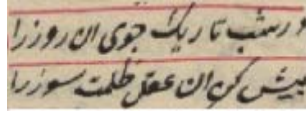 در شب تاریک جوی آن روز را
پیش کن آن عقل ظلمت سوز را